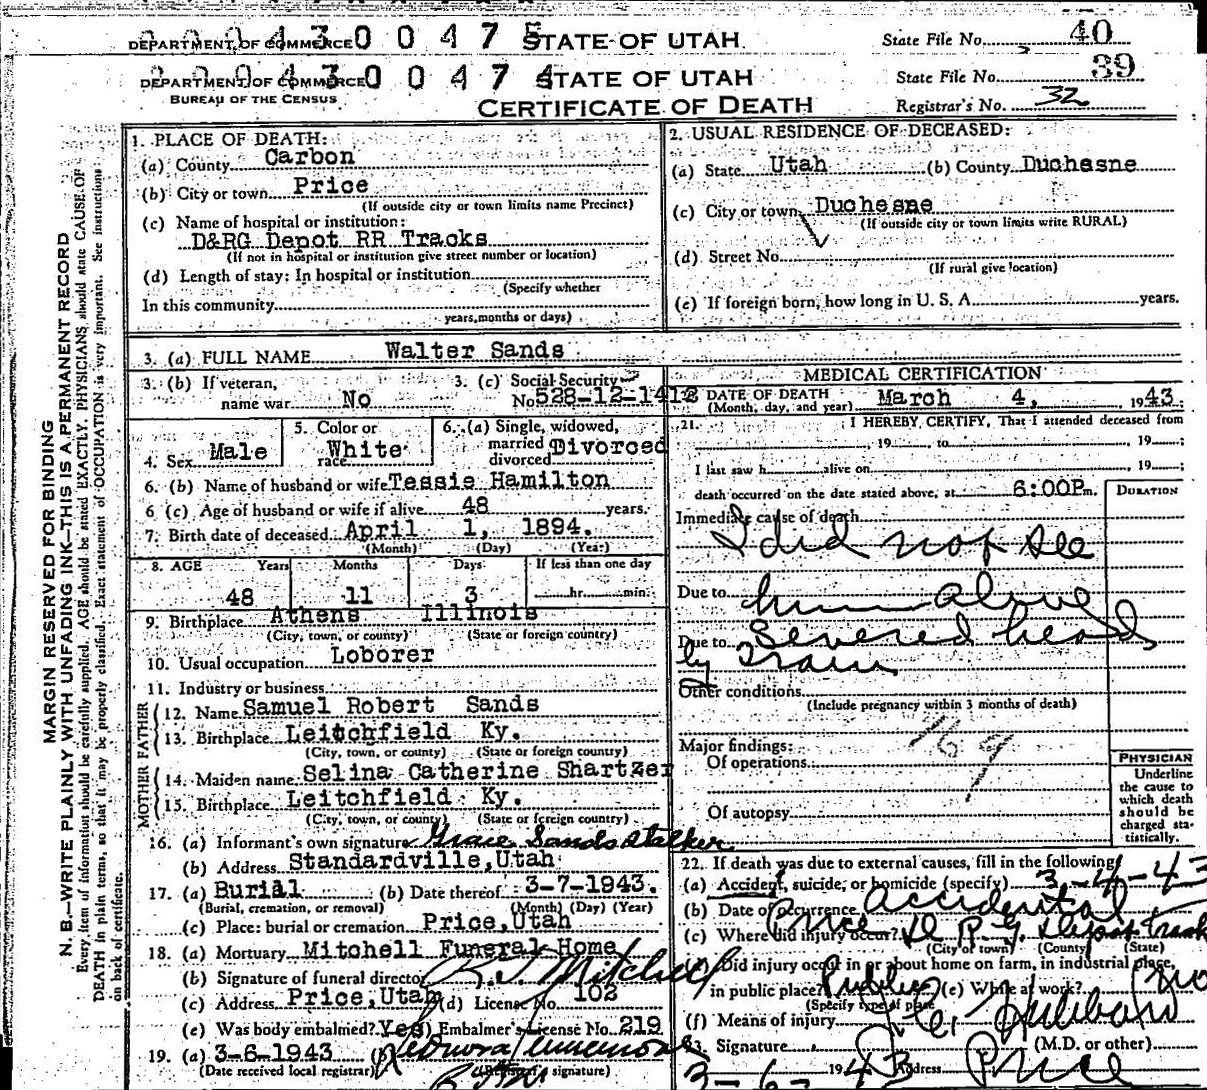 DEPARTMENT OF COMMERCE 0 0 4 7 5 STATE OF UTAH State File No. 40
DEPARTMENT OF COMMERCE 0 0 4 7 4 STATE OF UTAH State File No. 39
BUREAU OF THE CENSUS CERTIFICATE OF DEATH Registrar's No. 32
MARGIN RESERVED FOR BINDING
N. B.—WRITE PLAINLY WITH UNFADING INK—THIS IS A PERMANENT RECORD
Every item of information should be carefully supplied. AGE should be stated EXACTLY. PHYSICIANS should state CAUSE OF
DEATH in plain terms, so that it may be properly classified. Exact statement of OCCUPATION is very important. See instructions
on back of certificate.
1. PLACE OF DEATH:
(a) County Carbon
(b) City or town Price
(If outside city or town limits name Precinct)
(c) Name of hospital or institution:
D&RG Depot RR Tracks
(If not in hospital or institution give street number or location)
(d) Length of stay: In hospital or institution
(Specify whether
In this community
years, months or days)
2. USUAL RESIDENCE OF DECEASED:
(a) State Utah (b) County Duchesne
(c) City or town Duchesne
(If outside city or town limits write RURAL)
(d) Street No.
(If rural give location)
(e) If foreign born, how long in U. S. A. years.
3. (a) FULL NAME Walter Sands
3. (b) If veteran, 3. (c) Social Security
name war No No. 528-12-1412
4. Sex Male 5. Color or race White 6. (a) Single, widowed, married divorced Divorced
6. (b) Name of husband or wife Tessie Hamilton
6 (c) Age of husband or wife if alive 48 years.
7. Birth date of deceased April 1, 1894.
(Month) (Day) (Year)
8. AGE Years Months Days If less than one day
48 11 3 hr. min.
9. Birthplace Athens Illinois
(City, town, or county) (State or foreign country)
10. Usual occupation Loborer
11. Industry or business
FATHER
12. Name Samuel Robert Sands
13. Birthplace Leitchfield Ky.
(City, town, or county) (State or foreign country)
MOTHER
14. Maiden name Selina Catherine Shartzer
15. Birthplace Leitchfield Ky.
(City, town, or county) (State or foreign country)
16. (a) Informant's own signature Grace Sands Stalker
(b) Address Standardville, Utah
17. (a) Burial (b) Date thereof 3-7-1943.
(Burial, cremation, or removal) (Month) (Day) (Year)
(c) Place: burial or cremation Price, Utah
18. (a) Mortuary Mitchell Funeral Home
(b) Signature of funeral director Mitchell
(c) Address Price, Utah (d) License No. 102
(e) Was body embalmed? Yes (f) Embalmer's License No. 219
19. (a) 3-6-1943 (b)
(Date received local registrar) (Registrar's signature)
MEDICAL CERTIFICATION
DATE OF DEATH March 4, 1943
(Month, day, and year)
21. I HEREBY CERTIFY, That I attended deceased from
, 19 , to , 19 ;
I last saw h alive on , 19 ;
death occurred on the date stated above, at 6:00P m. DURATION
Immediate cause of death
I did not see
Due to him alive
Due to Severed head
by Train
Other conditions
(Include pregnancy within 3 months of death)
169
Major findings:
Of operations
Of autopsy
PHYSICIAN
Underline
the cause to
which death
should be
charged sta-
tistically.
22. If death was due to external causes, fill in the following:
(a) Accident, suicide, or homicide (specify) 3-4-43
(b) Date of occurrence accidental
(c) Where did injury occur? Price D. R. G. Depot Track
(City or town) (County) (State)
Did injury occur in or about home on farm, in industrial place,
in public place? Public (e) While at work? no
(Specify type of place
(f) Means of injury
23. Signature Hubbard (M.D. or other)
3-6- 1943 Address Price